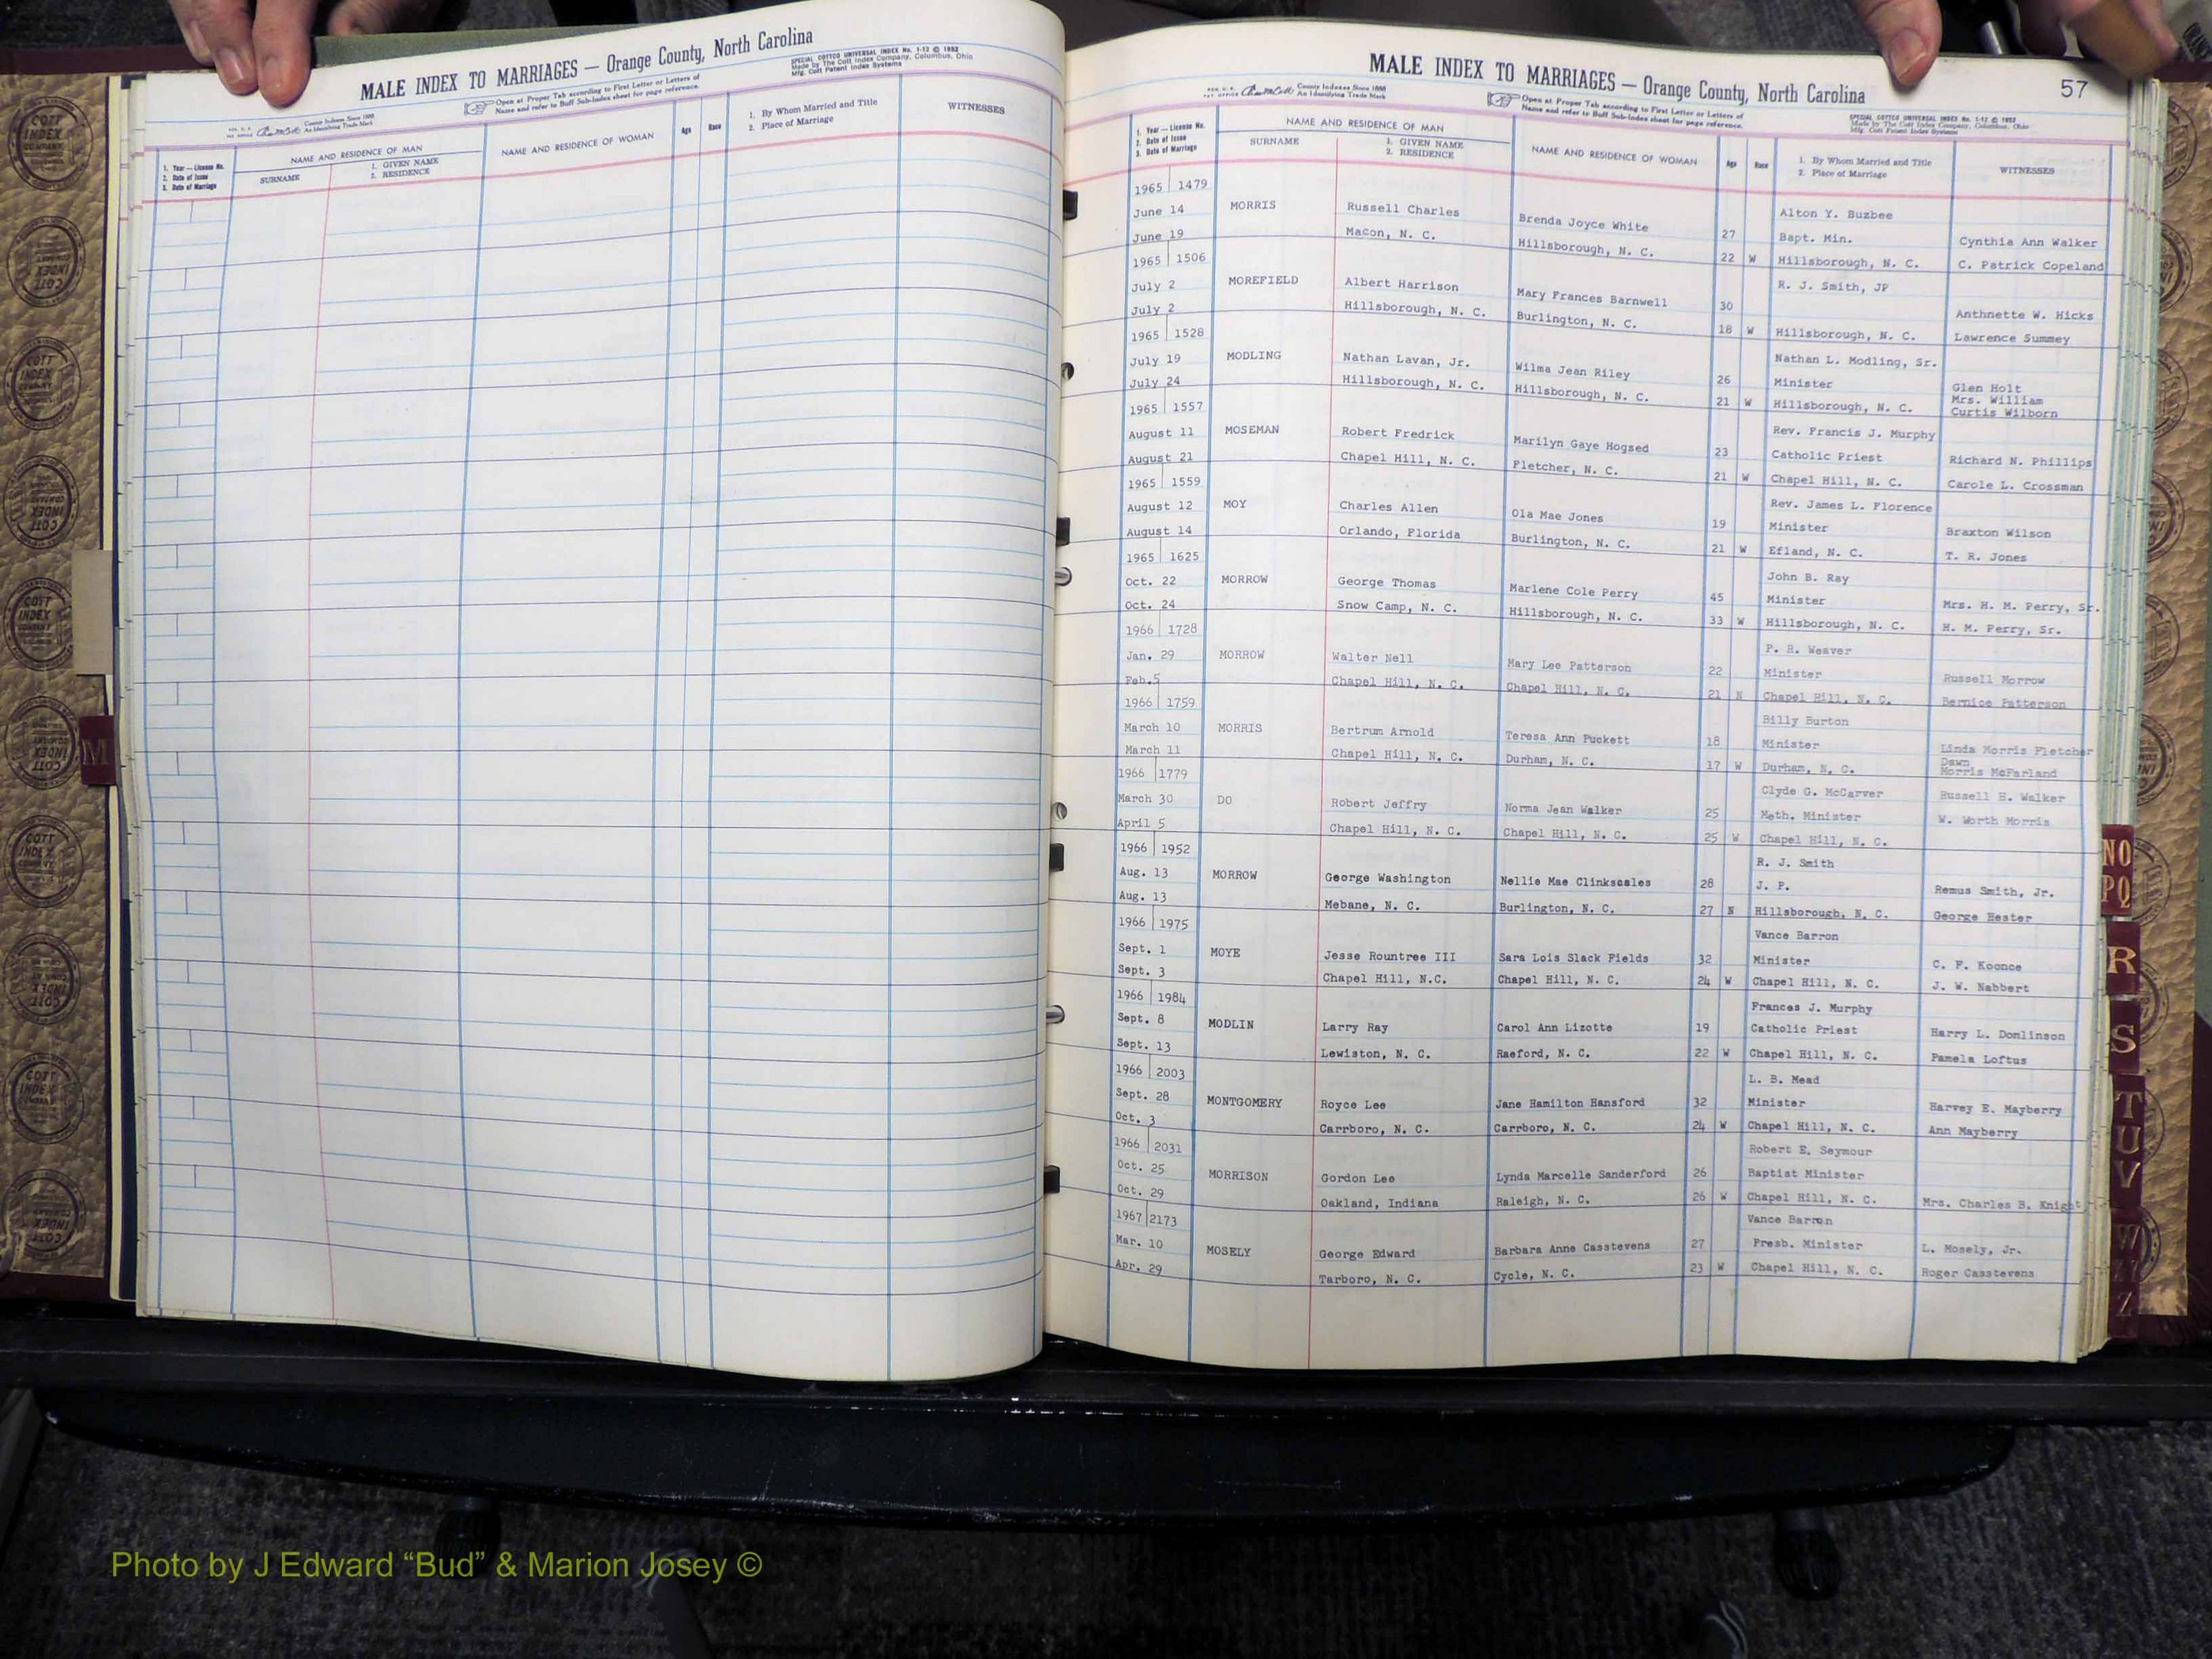 MALE INDEX TO MARRIAGES — Orange County, North Carolina
SPECIAL COTTCO UNIVERSAL INDEX No. 1-12 © 1952
Made by The Cott Index Company, Columbus, Ohio
Mfg. Cott Patent Index Systems
Open at Proper Tab according to First Letter or Letters of
Name and refer to Buff Sub-Index sheet for page reference.
County Indexes Since 1888
An Identifying Trade Mark
1. Year — License No.
2. Date of Issue
3. Date of Marriage
NAME AND RESIDENCE OF MAN
SURNAME
1. GIVEN NAME
2. RESIDENCE
NAME AND RESIDENCE OF WOMAN
Age
Race
1. By Whom Married and Title
2. Place of Marriage
WITNESSES
MALE INDEX TO MARRIAGES — Orange County, North Carolina
57
County Indexes Since 1888
An Identifying Trade Mark
Open at Proper Tab according to First Letter or Letters of
Name and refer to Buff Sub-Index sheet for page reference.
SPECIAL COTTCO UNIVERSAL INDEX No. 1-12 © 1952
Made by The Cott Index Company, Columbus, Ohio
Mfg. Cott Patent Index Systems
1. Year — License No.
2. Date of Issue
3. Date of Marriage
NAME AND RESIDENCE OF MAN
SURNAME
1. GIVEN NAME
2. RESIDENCE
NAME AND RESIDENCE OF WOMAN
Age
Race
1. By Whom Married and Title
2. Place of Marriage
WITNESSES
1965 1479
June 14 MORRIS Russell Charles Brenda Joyce White 27 Alton Y. Buzbee
June 19 Macon, N. C. Hillsborough, N. C. 22 W Bapt. Min. Cynthia Ann Walker
Hillsborough, N. C. C. Patrick Copeland
1965 1506
July 2 MOREFIELD Albert Harrison Mary Frances Barnwell 30 R. J. Smith, JP
July 2 Hillsborough, N. C. Burlington, N. C. 18 W Anthnette W. Hicks
Hillsborough, N. C. Lawrence Summey
1965 1528
July 19 MODLING Nathan Lavan, Jr. Wilma Jean Riley 26 Nathan L. Modling, Sr.
July 24 Hillsborough, N. C. Hillsborough, N. C. 21 W Minister Glen Holt
Hillsborough, N. C. Mrs. William
Curtis Wilborn
1965 1557
August 11 MOSEMAN Robert Fredrick Marilyn Gaye Hogsed 23 Rev. Francis J. Murphy
August 21 Chapel Hill, N. C. Fletcher, N. C. 21 W Catholic Priest Richard N. Phillips
Chapel Hill, N. C. Carole L. Crossman
1965 1559
August 12 MOY Charles Allen Ola Mae Jones 19 Rev. James L. Florence
August 14 Orlando, Florida Burlington, N. C. 21 W Minister Braxton Wilson
Efland, N. C. T. R. Jones
1965 1625
Oct. 22 MORROW George Thomas Marlene Cole Perry 45 John B. Ray
Oct. 24 Snow Camp, N. C. Hillsborough, N. C. 33 W Minister Mrs. H. M. Perry, Sr.
Hillsborough, N. C. H. M. Perry, Sr.
1966 1728
Jan. 29 MORROW Walter Nell Mary Lee Patterson 22 P. R. Weaver
Feb.5 Chapel Hill, N. C. Chapel Hill, N. C. 21 N Minister Russell Morrow
Chapel Hill, N. C. Bernice Patterson
1966 1759
March 10 MORRIS Bertrum Arnold Teresa Ann Puckett 18 Billy Burton
March 11 Chapel Hill, N. C. Durham, N. C. 17 W Minister Linda Morris Fletcher
Durham, N. C. Dawn
Morris McFarland
1966 1779
March 30 DO Robert Jeffry Norma Jean Walker 25 Clyde G. McCarver Russell H. Walker
April 5 Chapel Hill, N. C. Chapel Hill, N. C. 25 W Meth. Minister W. Worth Morris
Chapel Hill, N. C.
1966 1952
Aug. 13 MORROW George Washington Nellie Mae Clinkscales 28 R. J. Smith
Aug. 13 Mebane, N. C. Burlington, N. C. 27 N J. P. Remus Smith, Jr.
Hillsborough, N. C. George Hester
1966 1975
Sept. 1 MOYE Jesse Rountree III Sara Lois Slack Fields 32 Vance Barron
Sept. 3 Chapel Hill, N.C. Chapel Hill, N. C. 24 W Minister C. F. Koonce
Chapel Hill, N. C. J. W. Nabbert
1966 1984
Sept. 8 MODLIN Larry Ray Carol Ann Lizotte 19 Frances J. Murphy
Sept. 13 Lewiston, N. C. Raeford, N. C. 22 W Catholic Priest Harry L. Domlinson
Chapel Hill, N. C. Pamela Loftus
1966 2003
Sept. 28 MONTGOMERY Royce Lee Jane Hamilton Hansford 32 L. B. Mead
Oct. 3 Carrboro, N. C. Carrboro, N. C. 24 W Minister Harvey E. Mayberry
Chapel Hill, N. C. Ann Mayberry
1966 2031
Oct. 25 MORRISON Gordon Lee Lynda Marcelle Sanderford 26 Robert E. Seymour
Oct. 29 Oakland, Indiana Raleigh, N. C. 26 W Baptist Minister
Chapel Hill, N. C. Mrs. Charles B. Knight
1967 2173
Mar. 10 MOSELY George Edward Barbara Anne Casstevens 27 Vance Barron
Apr. 29 Tarboro, N. C. Cycle, N. C. 23 W Presb. Minister L. Mosely, Jr.
Chapel Hill, N. C. Roger Casstevens
M
NO
PQ
R
S
T
U
V
W
Z
COTT
INDEX
COMPANY
Photo by J Edward “Bud” & Marion Josey ©